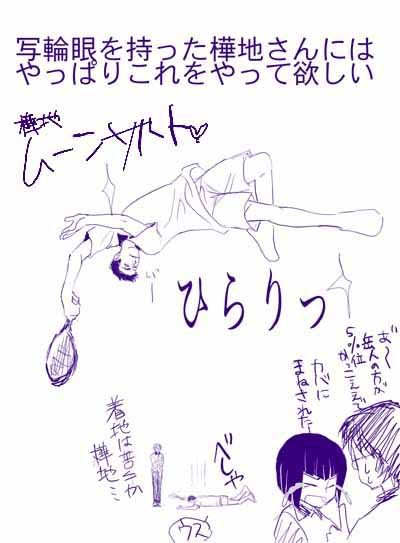 写輪眼を持った樺地さんには
やっぱりこれをやって欲しい
樺地
ムーンサルト♡
ひらりっ
お〜
岳人の方が
5%位
かっこええで
カバに
まねされた!
着地は苦手か
樺地…
べしゃ
ウス